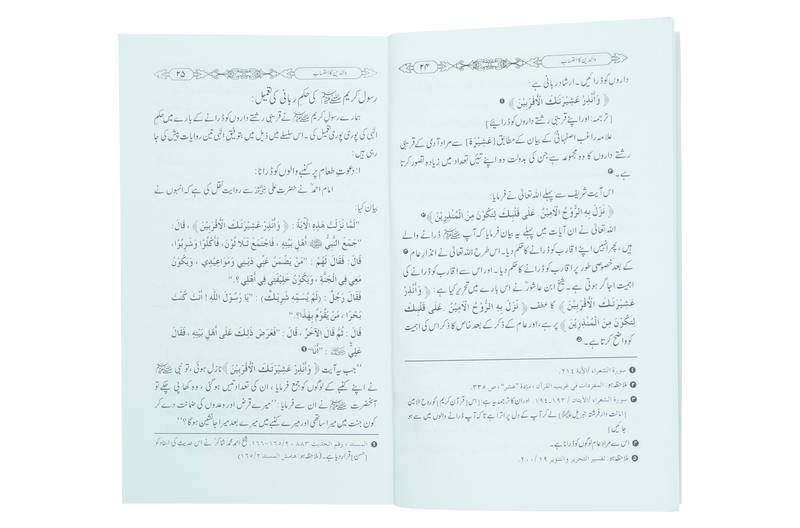 والدین کا احتساب
۲۴
داروں کو ڈرائیں۔ ارشادِ ربانی ہے:
﴿ وَأَنْذِرْ عَشِيْرَتَكَ الْأَقْرَبِيْنَ ﴾ ❶
[ترجمہ: اور اپنے قریبی رشتے داروں کو ڈرائیے]
علامہ راغب اصفہانی کے بیان کے مطابق {عَشِيْرَة} سے مراد آدمی کے قریبی
رشتے داروں کا وہ مجموعہ ہے جن کی بدولت وہ اپنے تئیں تعداد میں زیادہ تصور کرتا
ہے۔ ❷
اس آیت شریف سے پہلے اللہ تعالیٰ نے فرمایا:
﴿ نَزَلَ بِهِ الرُّوْحُ الْأَمِيْنُ. عَلَى قَلْبِكَ لِتَكُوْنَ مِنَ الْمُنْذِرِيْنَ ﴾ ❸
اللہ تعالیٰ نے ان آیات میں پہلے یہ بیان فرمایا کہ آپ ﷺ ڈرانے والے
ہیں، پھر انہیں اپنے اقارب کو ڈرانے کا حکم دیا۔ اس طرح اللہ تعالیٰ نے انذارِ عام ❹
کے بعد خصوصی طور پر اقارب کو ڈرانے کا حکم دیا۔ اور اس سے اقارب کو ڈرانے کی
اہمیت اجاگر ہوتی ہے۔ شیخ ابن عاشور نے اس بارے میں تحریر کیا ہے: ﴿ وَأَنْذِرْ
عَشِيْرَتَكَ الْأَقْرَبِيْنَ ﴾ کا عطف ﴿ نَزَلَ بِهِ الرُّوْحُ الْأَمِيْنُ. عَلَى قَلْبِكَ
لِتَكُوْنَ مِنَ الْمُنْذِرِيْنَ ﴾ پر ہے، اور عام کے ذکر کے بعد خاص کا ذکر اس کی اہمیت
کو واضح کرتا ہے۔ ❺
❶ سورة الشعراء / الآیة ۲۱۴.
❷ ملاحظہ ہو: المفردات في غریب القرآن، مادة "عشر"، ص ۳۳۵.
❸ سورة الشعراء / الآیتان ۱۹۳۔۱۹۴. اور ان کا ترجمہ یہ ہے: [اس (قرآن کریم) کو روح الامین
(امانت دار فرشتہ جبریل) لے کر آپ کے دل پر اترا ہے تاکہ آپ ڈرانے والوں میں سے ہو
جائیں]
❹ اس سے مراد عام لوگوں کو ڈرانا ہے۔
❺ ملاحظہ ہو: تفسیر التحریر والتنویر ۱۹/۲۰۰.
والدین کا احتساب
۲۵
رسول کریم ﷺ کی حکمِ ربانی کی تعمیل:
ہمارے رسول کریم ﷺ نے قریبی رشتے داروں کو ڈرانے کے بارے میں حکم
الٰہی کی پوری پوری تعمیل کی۔ اس سلسلے میں ذیل میں بتوفیق الٰہی تین روایات پیش کی جا
رہی ہیں:
ا: دعوتِ طعام پر کنبے والوں کو ڈرانا:
امام احمد نے حضرت علی سے روایت نقل کی ہے کہ انہوں نے
بیان کیا:
"لَمَّا نَزَلَتْ هَذِهِ الْآيَةُ: ﴿ وَأَنْذِرْ عَشِيْرَتَكَ الْأَقْرَبِيْنَ ﴾، قَالَ:
"جَمَعَ النَّبِيُّ ﷺ أَهْلَ بَيْتِهِ، فَاجْتَمَعَ ثَلَاثُوْنَ، فَأَكَلُوْا وَشَرِبُوْا،
قَالَ: فَقَالَ لَهُمْ: "مَنْ يَضْمَنُ عَنِّي دَيْنِي وَمَوَاعِيْدِي، وَيَكُوْنُ
مَعِي فِي الْجَنَّةِ، وَيَكُوْنُ خَلِيْفَتِي فِي أَهْلِي؟."
فَقَالَ رَجُلٌ: (لَمْ يُسَمِّهِ شَرِيْكٌ): "يَا رَسُوْلَ اللهِ! أَنْتَ كُنْتَ
بَحْرًا، مَنْ يَقُوْمُ بِهَذَا؟."
قَالَ: ثُمَّ قَالَ الْآخَرُ، قَالَ: "فَعَرَضَ ذَلِكَ عَلَى أَهْلِ بَيْتِهِ، فَقَالَ
عَلِيٌّ: "أَنَا" ❶
"جب یہ آیت ﴿ وَأَنْذِرْ عَشِيْرَتَكَ الْأَقْرَبِيْنَ ﴾ نازل ہوئی، تو نبی ﷺ
نے اپنے کنبے کے لوگوں کو جمع فرمایا، ان کی تعداد تیس ہو گئی، وہ کھا پی چکے تو
آنحضرت ﷺ نے ان سے فرمایا: "میرے قرض اور وعدوں کی ضمانت دے کر
کون جنت میں میرا ساتھی اور میرے کنبے میں میرے بعد میرا جانشین ہو گا؟"
❶ المسند، رقم الحدیث ۸۸۳، ۲/۱۶۵۔۱۶۶ شیخ احمد محمد شاکر نے اس حدیث کی اسناد کو
[حسن] قرار دیا ہے۔ (ملاحظہ ہو: هامش المسند ۲/۱۶۵)